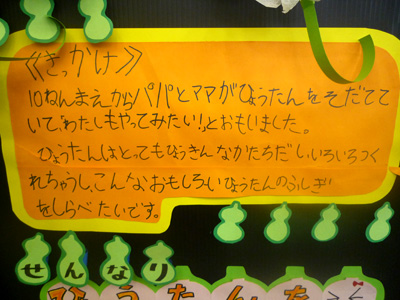 《きっかけ》
10ねんまえからパパとママがひょうたんをそだてて
いて、「わたしもやってみたい!」とおもいました。
ひょうたんはとってもひょうきんなかたちだし、いろいろつく
れちゃうし、こんなおもしろいひょうたんのふしぎ
をしらべたいです。
せんなり
ひょうたんを